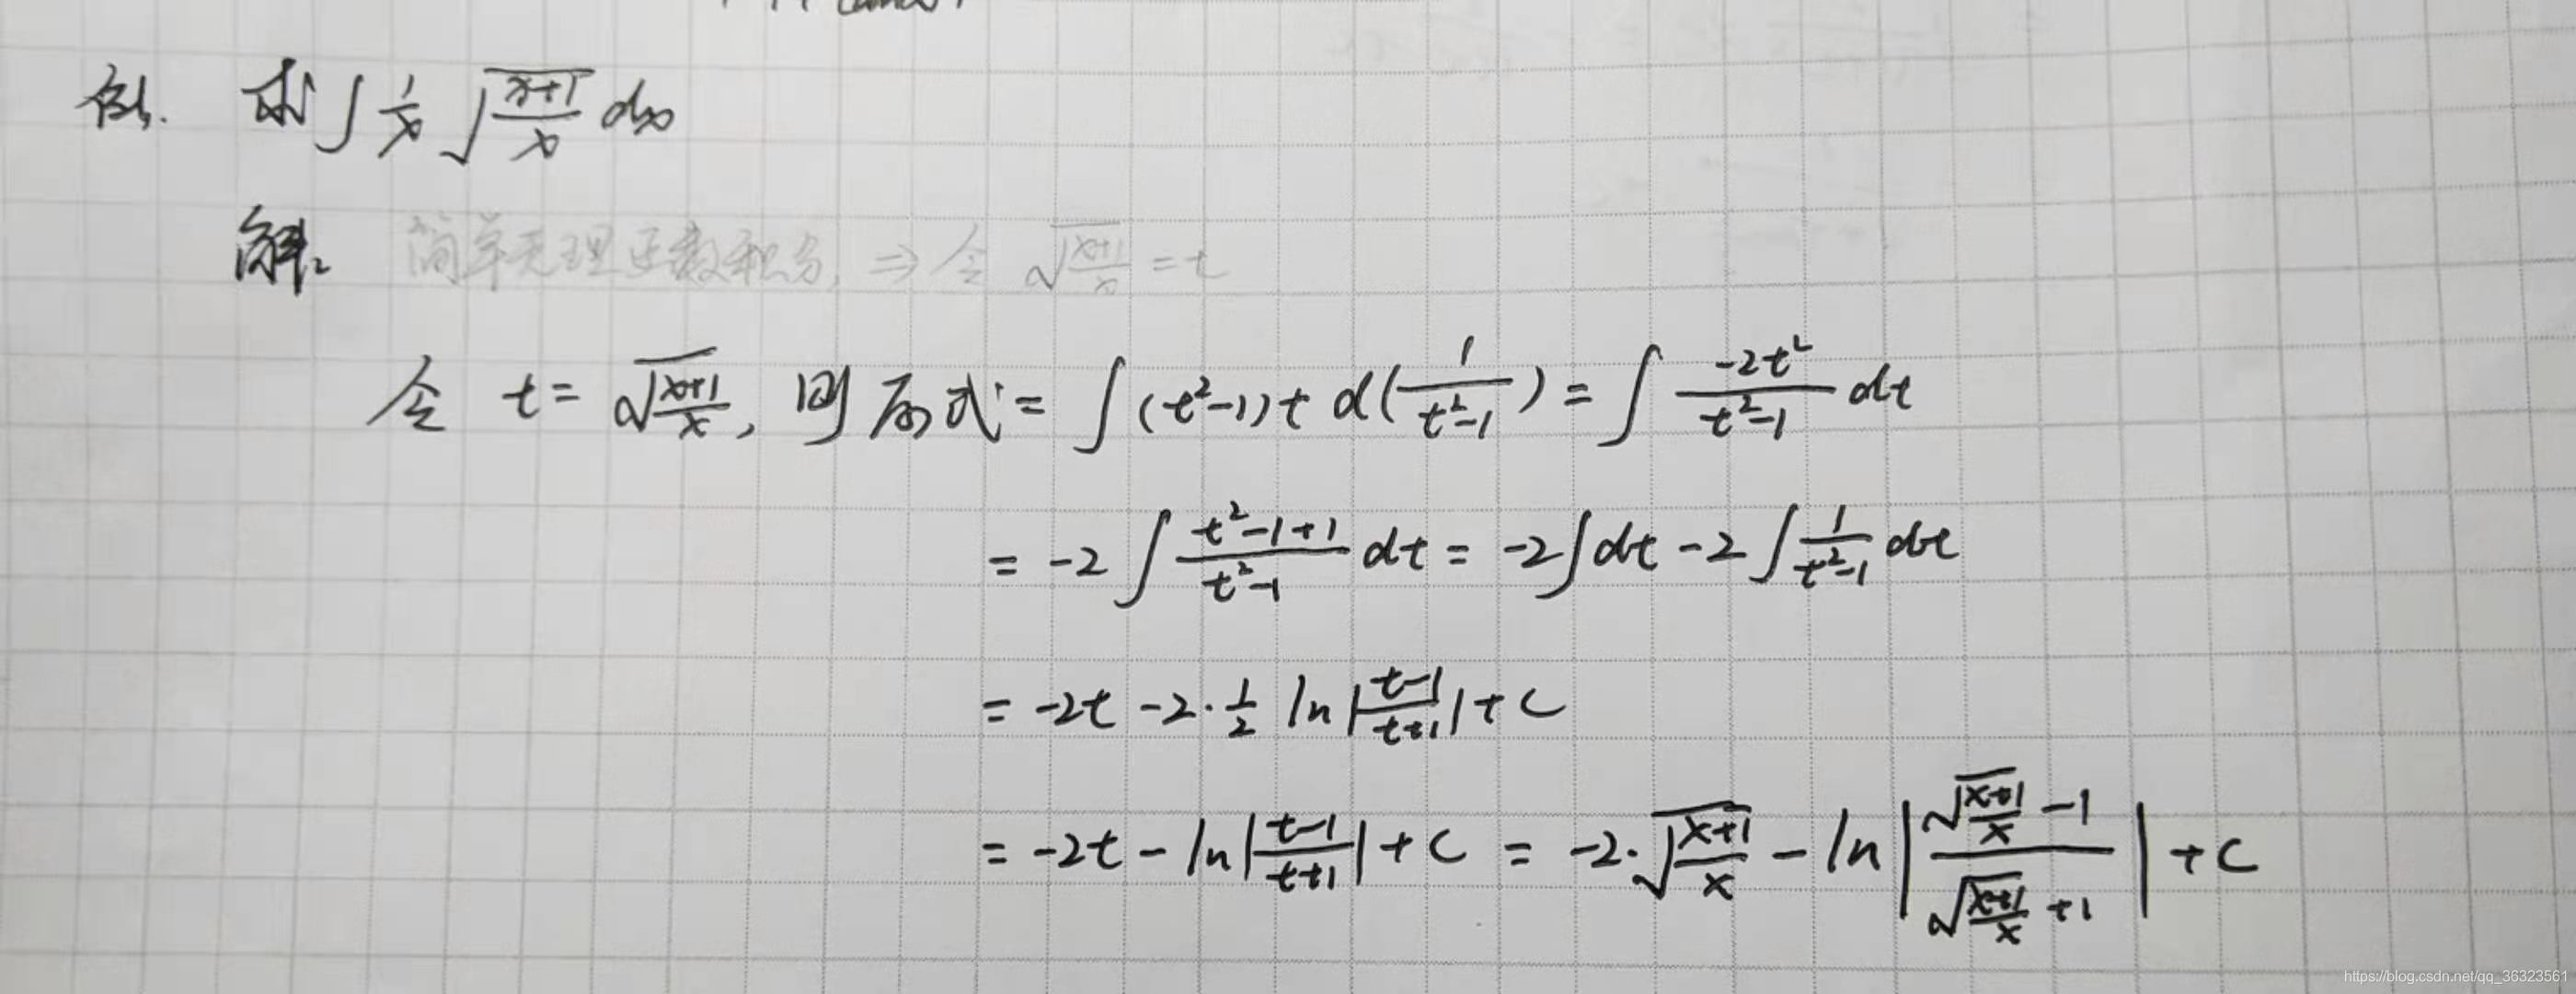 例. 求∫ 1/x √((x+1)/x) dx
解: 简单无理函数积分, ⇒ 令 √((x+1)/x) = t
令 t = √((x+1)/x), 则原式 = ∫(t²-1)t d(1/(t²-1)) = ∫ (-2t²)/(t²-1) dt
= -2∫ (t²-1+1)/(t²-1) dt = -2∫dt - 2∫ 1/(t²-1) dt
= -2t - 2·1/2 ln|(t-1)/(t+1)| + C
= -2t - ln|(t-1)/(t+1)| + C = -2·√((x+1)/x) - ln|(√((x+1)/x) - 1)/(√((x+1)/x) + 1)| + C
https://blog.csdn.net/qq_36323561